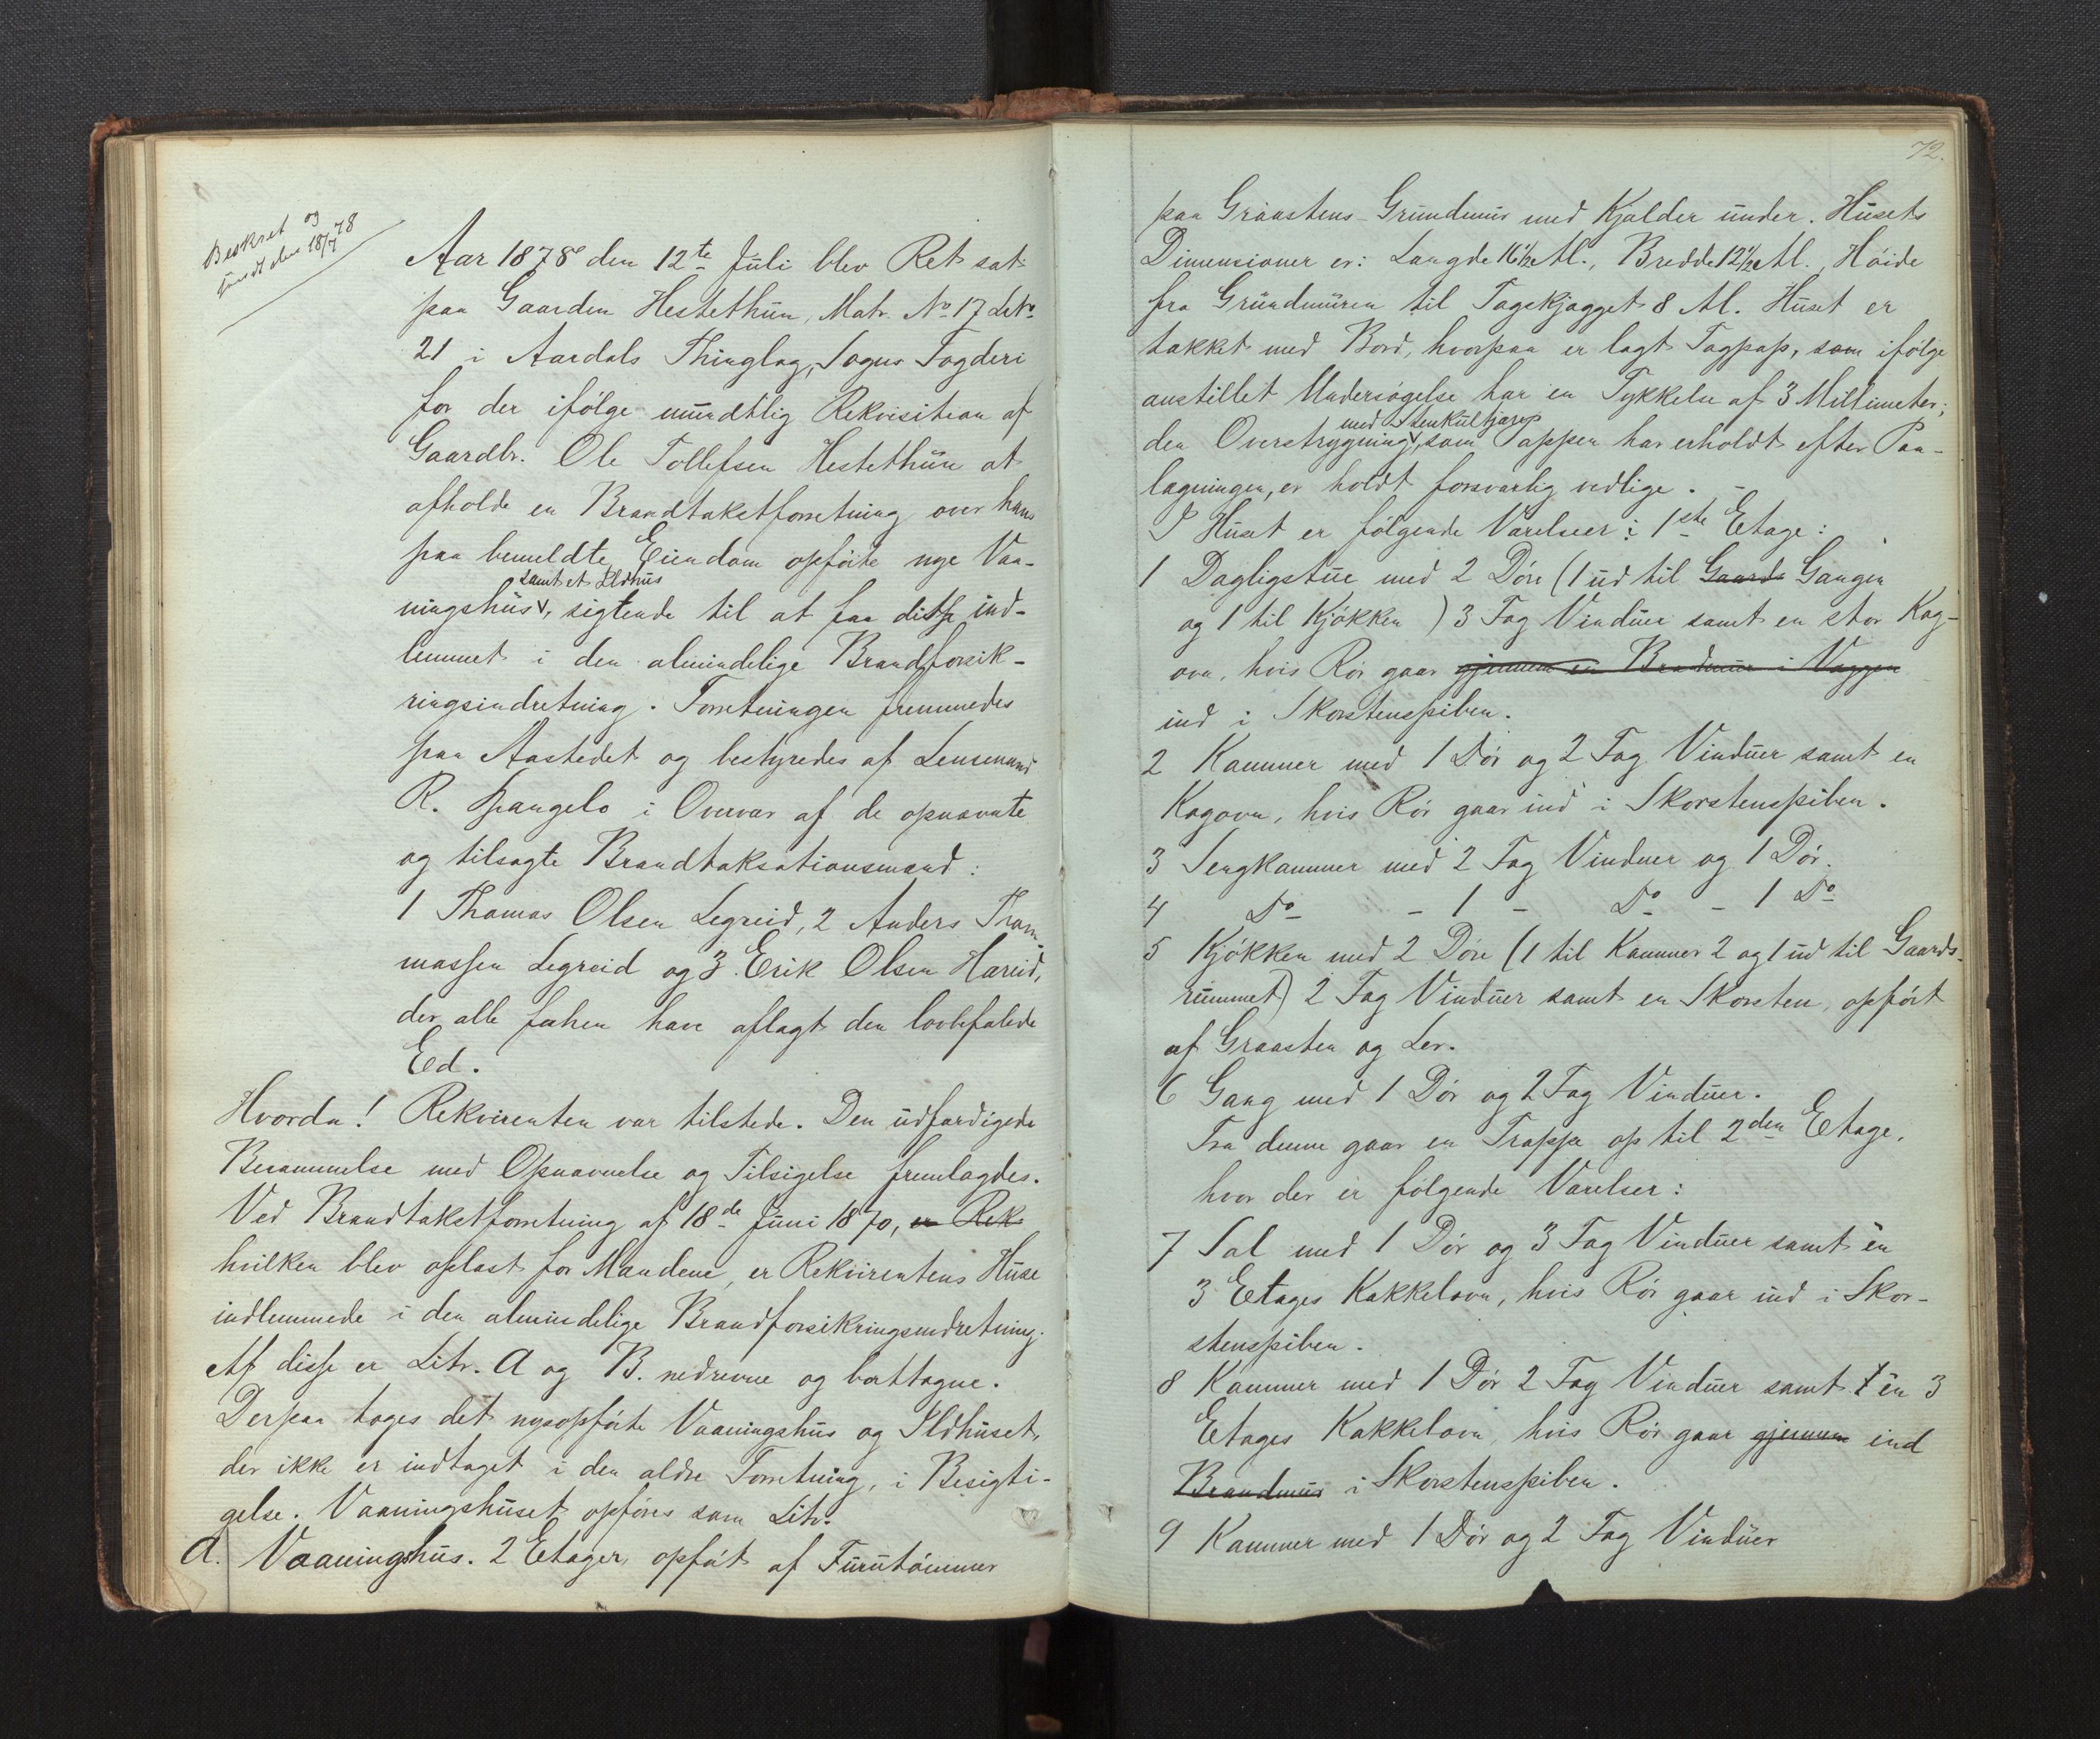 Beskret og
sendt den 18/7 78
Aar 1878 den 12te Juli blev Ret sat
paa Gaarden Hestethun, Matr. No 17 LNo
21 i Aardals Thinglag, Sogns Fogderi
for der ifølge mundtlig Rekvisition af
Gaardbr. Ole Tollefsen Hestethun at
afholde en Brandtakstforretning over hans
paa bemeldte Eiendom opførte nye Vaa-
samt et Ildhus
ningshus, sigtende til at faa disse ind-
lemmet i den almindelige Brandforsik-
ringsindretning. Forretningen fremmedes
paa Aastedet og bestyredes af Lensmand
R. Spangelo i Overvær af de opnævnte
og tilsagte Brandtaksationsmænd:
1 Thomas Olsen Legreid, 2 Anders Thom-
massen Legreid og 3. Erik Olsen Hareid,
der alle forhen have aflagt den lovbefalede
Ed.
Hvorda! Rekvirenten var tilstede. Den udfærdigede
Berammelse med Opnævnelse og Tilsigelse fremlagdes.
Ved Brandtakstforretning af 18de Juni 1870, er Rek
hvilken blev oplæst for Mændene, er Rekvirentens Huse
indlemmede i den almindelige Brandforsikringsindretning.
Af disse er Litr. A og B. nedrevne og borttagne.
Derpaa toges det nyopførte Vaaningshus og Ildhuset,
der ikke er indtaget i den ældre Forretning, i Besigti-
gelse. Vaaningshuset opføres som Litr.
A. Vaaningshus. 2 Etager, opført af Furutømmer
72.
paa Graastens Grundmur med Kjælder under. Husets
Dimensioner er: Længde 16 1/2 Al., Bredde 12 1/2 Al., Høide
fra Grundmuren til Tagskjægget 8 Al. Huset er
tækket med Bord, hvorpaa er lagt Tagpap, som ifølge
anstillet Undersøgelse har en Tykkelse af 3 Millimeter;
med Stenkultjære
den Overstrygning, som Pappen har erholdt efter Paa-
lægningen, er holdt forsvarlig vedlige. -
I Huset er følgende Værelser i 1ste Etage:
1 Dagligstue med 2 Døre (1 ud til Gaards Gangen
og 1 til Kjøkken) 3 Fag Vinduer samt en stor Kog-
ovn, hvis Rør gaar gjennem en Brandmur i Væggen
ind i Skorstenspiben.
2 Kammer med 1 Dør og 2 Fag Vinduer samt en
Kogovn, hvis Rør gaar ind i Skorstenspiben.
3 Sengkammer med 2 Fag Vinduer og 1 Dør.
4 Do - 1 - Do - 1 Do
5 Kjøkken med 2 Døre (1 til Kammer 2 og 1 ud til Gaards-
rummet) 2 Fag Vinduer samt en Skorsten, opført
af Graasten og Ler.
6 Gang med 1 Dør og 2 Fag Vinduer.
Fra denne gaar en Trappe op til 2den Etage,
hvor der er følgende Værelser:
7 Sal med 1 Dør og 3 Fag Vinduer samt en
3 Etages Kakkelovn, hvis Rør gaar ind i Skor-
stenspiben.
8 Kammer med 1 Dør 2 Fag Vinduer samt 1 en 3
Etages Kakkelovn, hvis Rør gaar gjennem ind
Brandmur i Skorstenspiben.
9 Kammer med 1 Dør og 2 Fag Vinduer